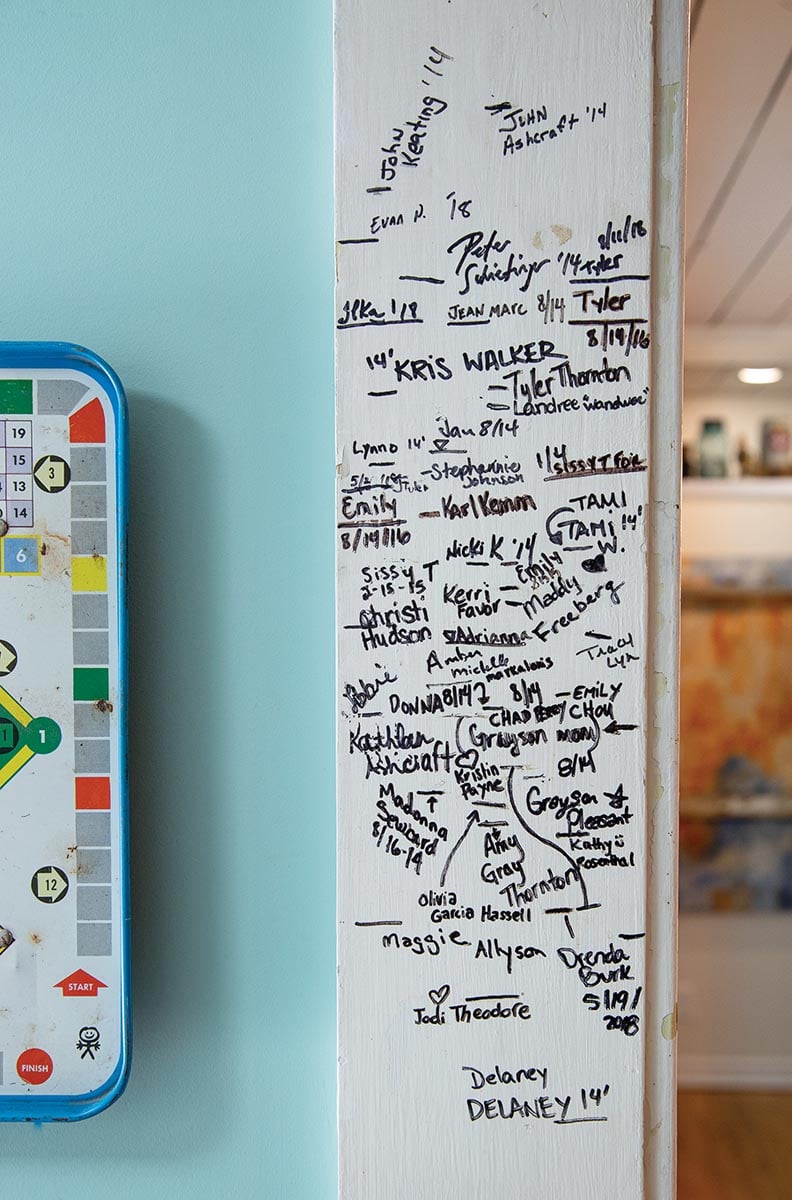 John
Keating '14
JOHN
Ashcraft '14
EVAN N. '18
Peter
'14
8/11/18
Tyler
Ilka '18
JEAN MARC 8/14
Tyler
8/19/16
14' KRIS WALKER
Tyler Thornton
Landree "wandwee"
Jan 8/14
Lynno 14'
Stephannie
Johnson
Sissy T Foie
Tyler
Emily
8/19/16
Karl Kemm
TAMI
TAMi '14'
W.
Nicki K '14
Emily
Sissy T
2-15-15
Kerri
Favor
Maddy
Freeberg
Christi
Hudson
Adrianna
Amber
michelle
Tracy
Lyn
DONNA 8/14
8/14
EMILY
CHOU
CHAD
Grayson mom
8/14
Ashcraft
Kristin
Payne
Madonna
Seward
8/16-14
Grayson
Pleasant
Kathy
Rosenthal
Amy
Gray
Thornton
Olivia
Garcia Hassell
Maggie
Allyson
Drenda
Burk
5/19/
2018
Jodi Theodore
Delaney
DELANEY 14'
19
15
13
14
3
6
1
1
12
START
FINISH